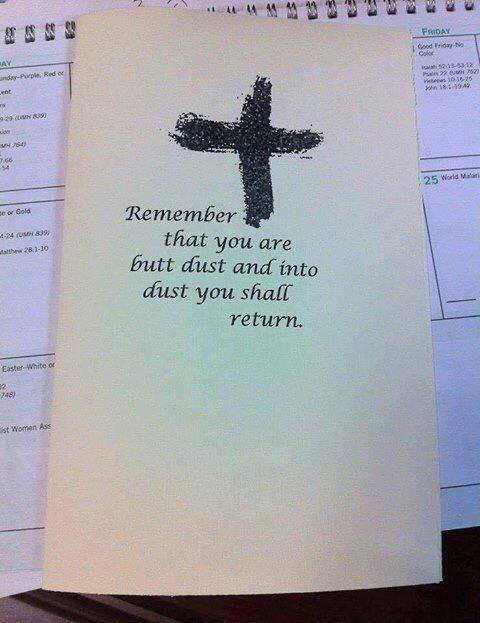 Remember
that you are
butt dust and into
dust you shall
return.
AY
unday-Purple, Red or
ent
9-29 (UMH 839)
MH 764)
7:66
-54
e or Gold
4-24 (UMH 839)
Matthew 28:1-10
Easter-White or
748)
ist Women Ass
FRIDAY
Good Friday-No
Color
Isaiah 52:13-53:12
Psalm 22 (UMH 752)
Hebrews 10:16-25
John 18:1-19:42
25 World Malari